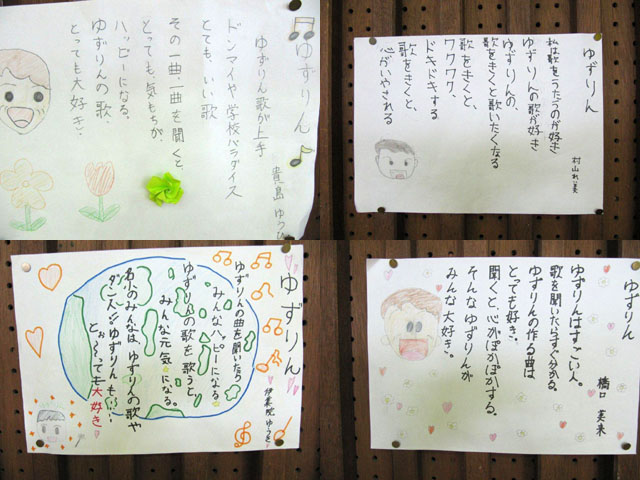 ゆずりん
ゆずりん歌が上手
ドンマイや学校パラダイス
とても、いい歌
その一曲、一曲を聞くと、
とっても、気もちが、
ハッピーになる、
ゆずりんの歌、
とっても大好き。
ゆずりん
村山
私は歌をうたうのが好き
ゆずりんの歌が好き
ゆずりんの、
歌をきくと歌いたくなる
歌をきくと、
ワクワク、
ドキドキする
歌をきくと、
心がいやされる
ゆずりん
ゆずりんの曲を聞いたら
みんなハッピーになる
ゆずりんの歌を歌うと、
みんな元気になる。
みんなは、ゆずりんの歌や
ダンス
ゆずりん
とぉ〜っても大好き
ゆずりん
橋口 実来
ゆずりんはすごい人。
歌を聞いたらすぐ分かる。
ゆずりんの作る曲は
とっても好き。
聞くと、心がぽかぽかする。
そんなゆずりんが
みんな大好き。